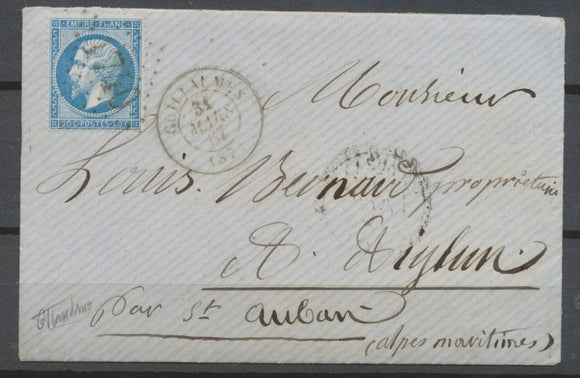 EMPIRE FRANC
20 C POSTES 20 C
GUILLAUMES
31
(87)
Monsieur
Louis Bernard propriétaire
A. Aiglun
par St Auban
(alpes maritimes)